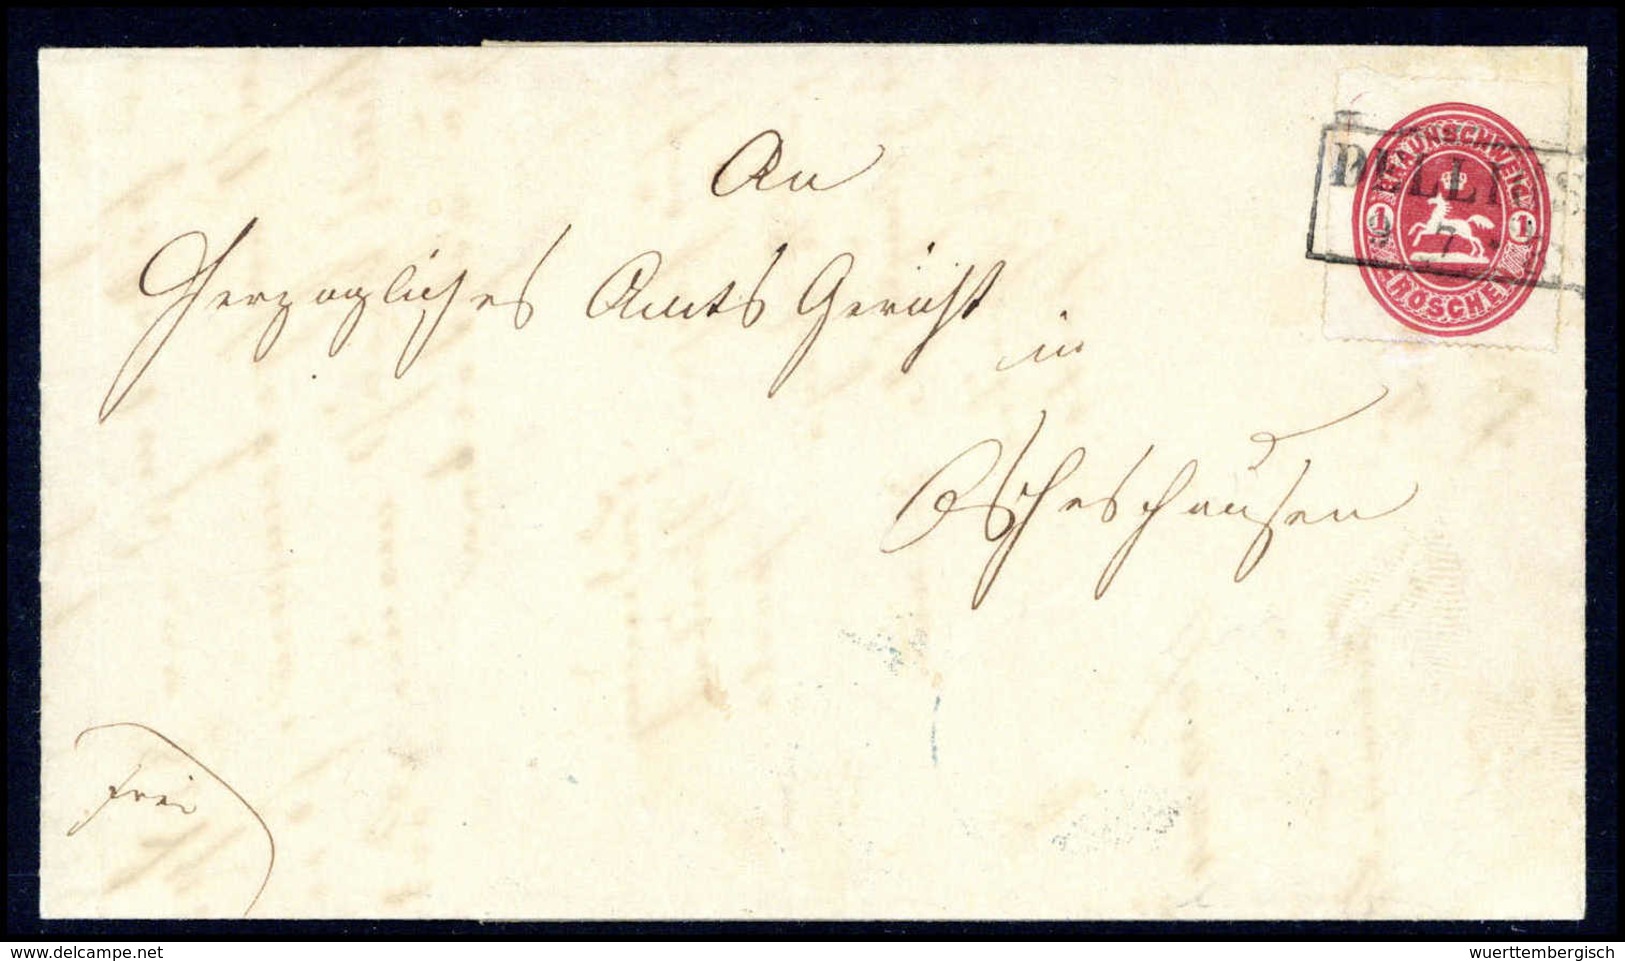 An
Herzogliches Amts Gericht
in
Oschershausen
frei
BRAUNSCHWEIG
1 1
GROSCHEN
9 7
delcampe.net
wuerttembergisch